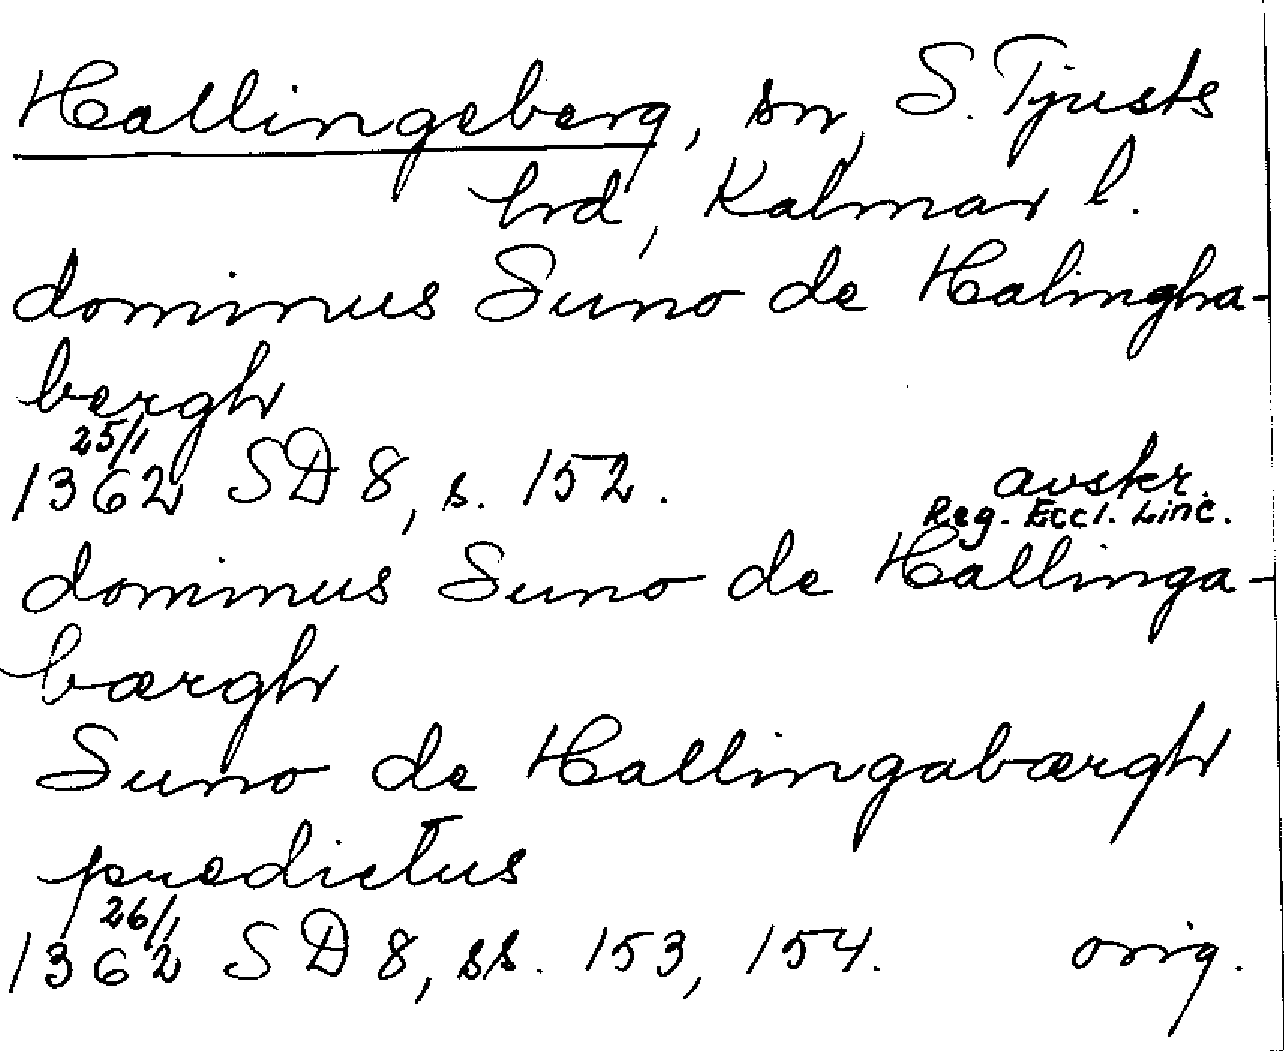 Hallingeberg, sn, S. Tjusts
hd, Kalmar l.
dominus Suno de Halingha-
bergh
25/1
1362 SD 8, s. 152. avskr.
Reg. Eccl. Linc.
dominus Suno de Hallinga-
bærgh
Suno de Hallingabærgh
predictus
26/1
1362 SD 8, ss. 153, 154. orig.